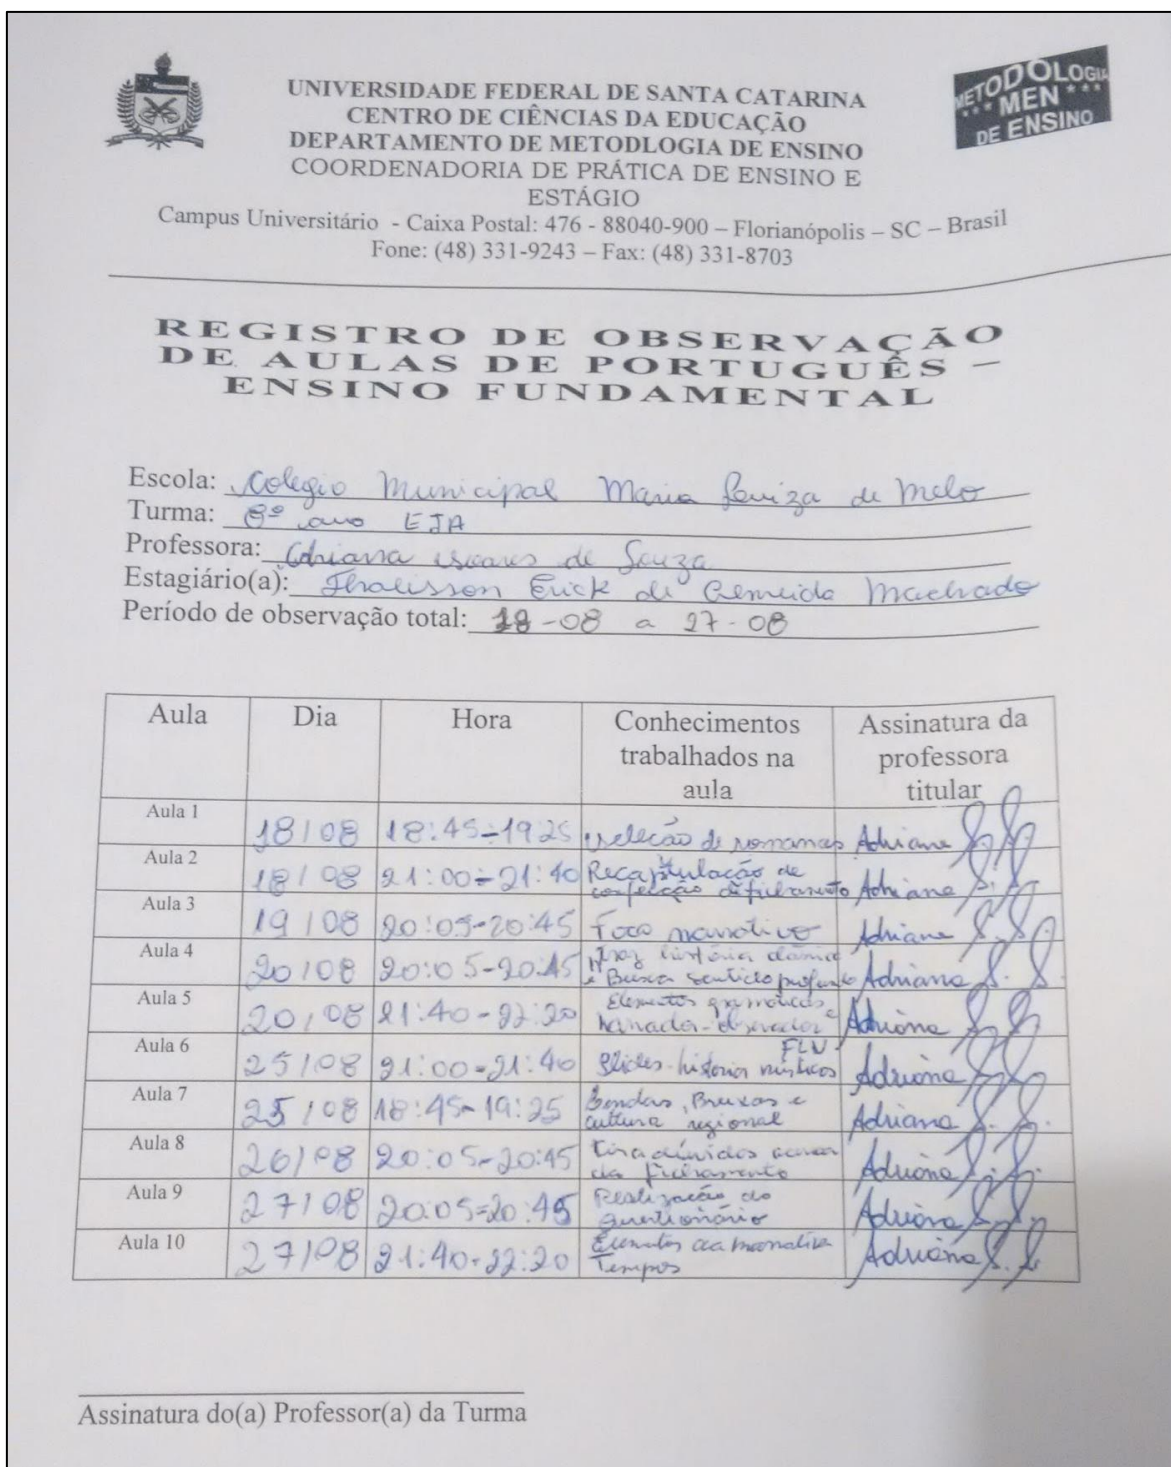 UNIVERSIDADE FEDERAL DE SANTA CATARINA
CENTRO DE CIÊNCIAS DA EDUCAÇÃO
DEPARTAMENTO DE METODLOGIA DE ENSINO
COORDENADORIA DE PRÁTICA DE ENSINO E
ESTÁGIO
Campus Universitário - Caixa Postal: 476 - 88040-900 – Florianópolis – SC – Brasil
Fone: (48) 331-9243 – Fax: (48) 331-8703
METODOLOGIA
*** MEN ***
DE ENSINO
REGISTRO DE OBSERVAÇÃO
DE AULAS DE PORTUGUÊS –
ENSINO FUNDAMENTAL
Escola: Colégio Municipal Maria Luiza de Melo
Turma: 8º ano EJA
Professora: Adriana Soares de Souza
Estagiário(a): Thalisson Erick de Almeida Machado
Período de observação total: 18-08 a 27-08
Aula Dia Hora Conhecimentos trabalhados na aula Assinatura da professora titular
Aula 1 18/08 18:45-19:25 seleção de romances Adriana S. S.
Aula 2 18/08 21:00-21:40 Recapitulação de confecção de fichamento Adriana S. S.
Aula 3 19/08 20:05-20:45 Foco narrativo Adriana S. S.
Aula 4 20/08 20:05-20:45 história e Busca sentido profundo Adriana S. S.
Aula 5 20/08 21:40-22:20 Elementos gramaticais e narrador-observador Adriana S. S.
Aula 6 25/08 21:00-21:40 Slides-história místicos FLN Adriana S. S.
Aula 7 25/08 18:45-19:25 Lendas, Bruxas e cultura regional Adriana S. S.
Aula 8 26/08 20:05-20:45 Tira dúvidas acerca do fichamento Adriana S. S.
Aula 9 27/08 20:05-20:45 Realização do questionário Adriana S. S.
Aula 10 27/08 21:40-22:20 Elementos da narrativa Tempos Adriana S. S.
Assinatura do(a) Professor(a) da Turma